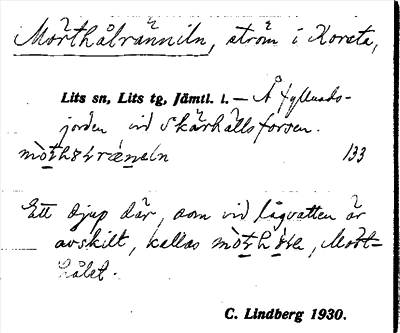 Mörthålränniln, ström i Korsta,
Lits sn, Lits tg, Jämtl. l. — Å Fyllnads-
jorden vid Skärhällsforsen.
133
Ett djup där, som vid lågvatten är
avskilt, kallas Mört-
hålet.
C. Lindberg 1930.